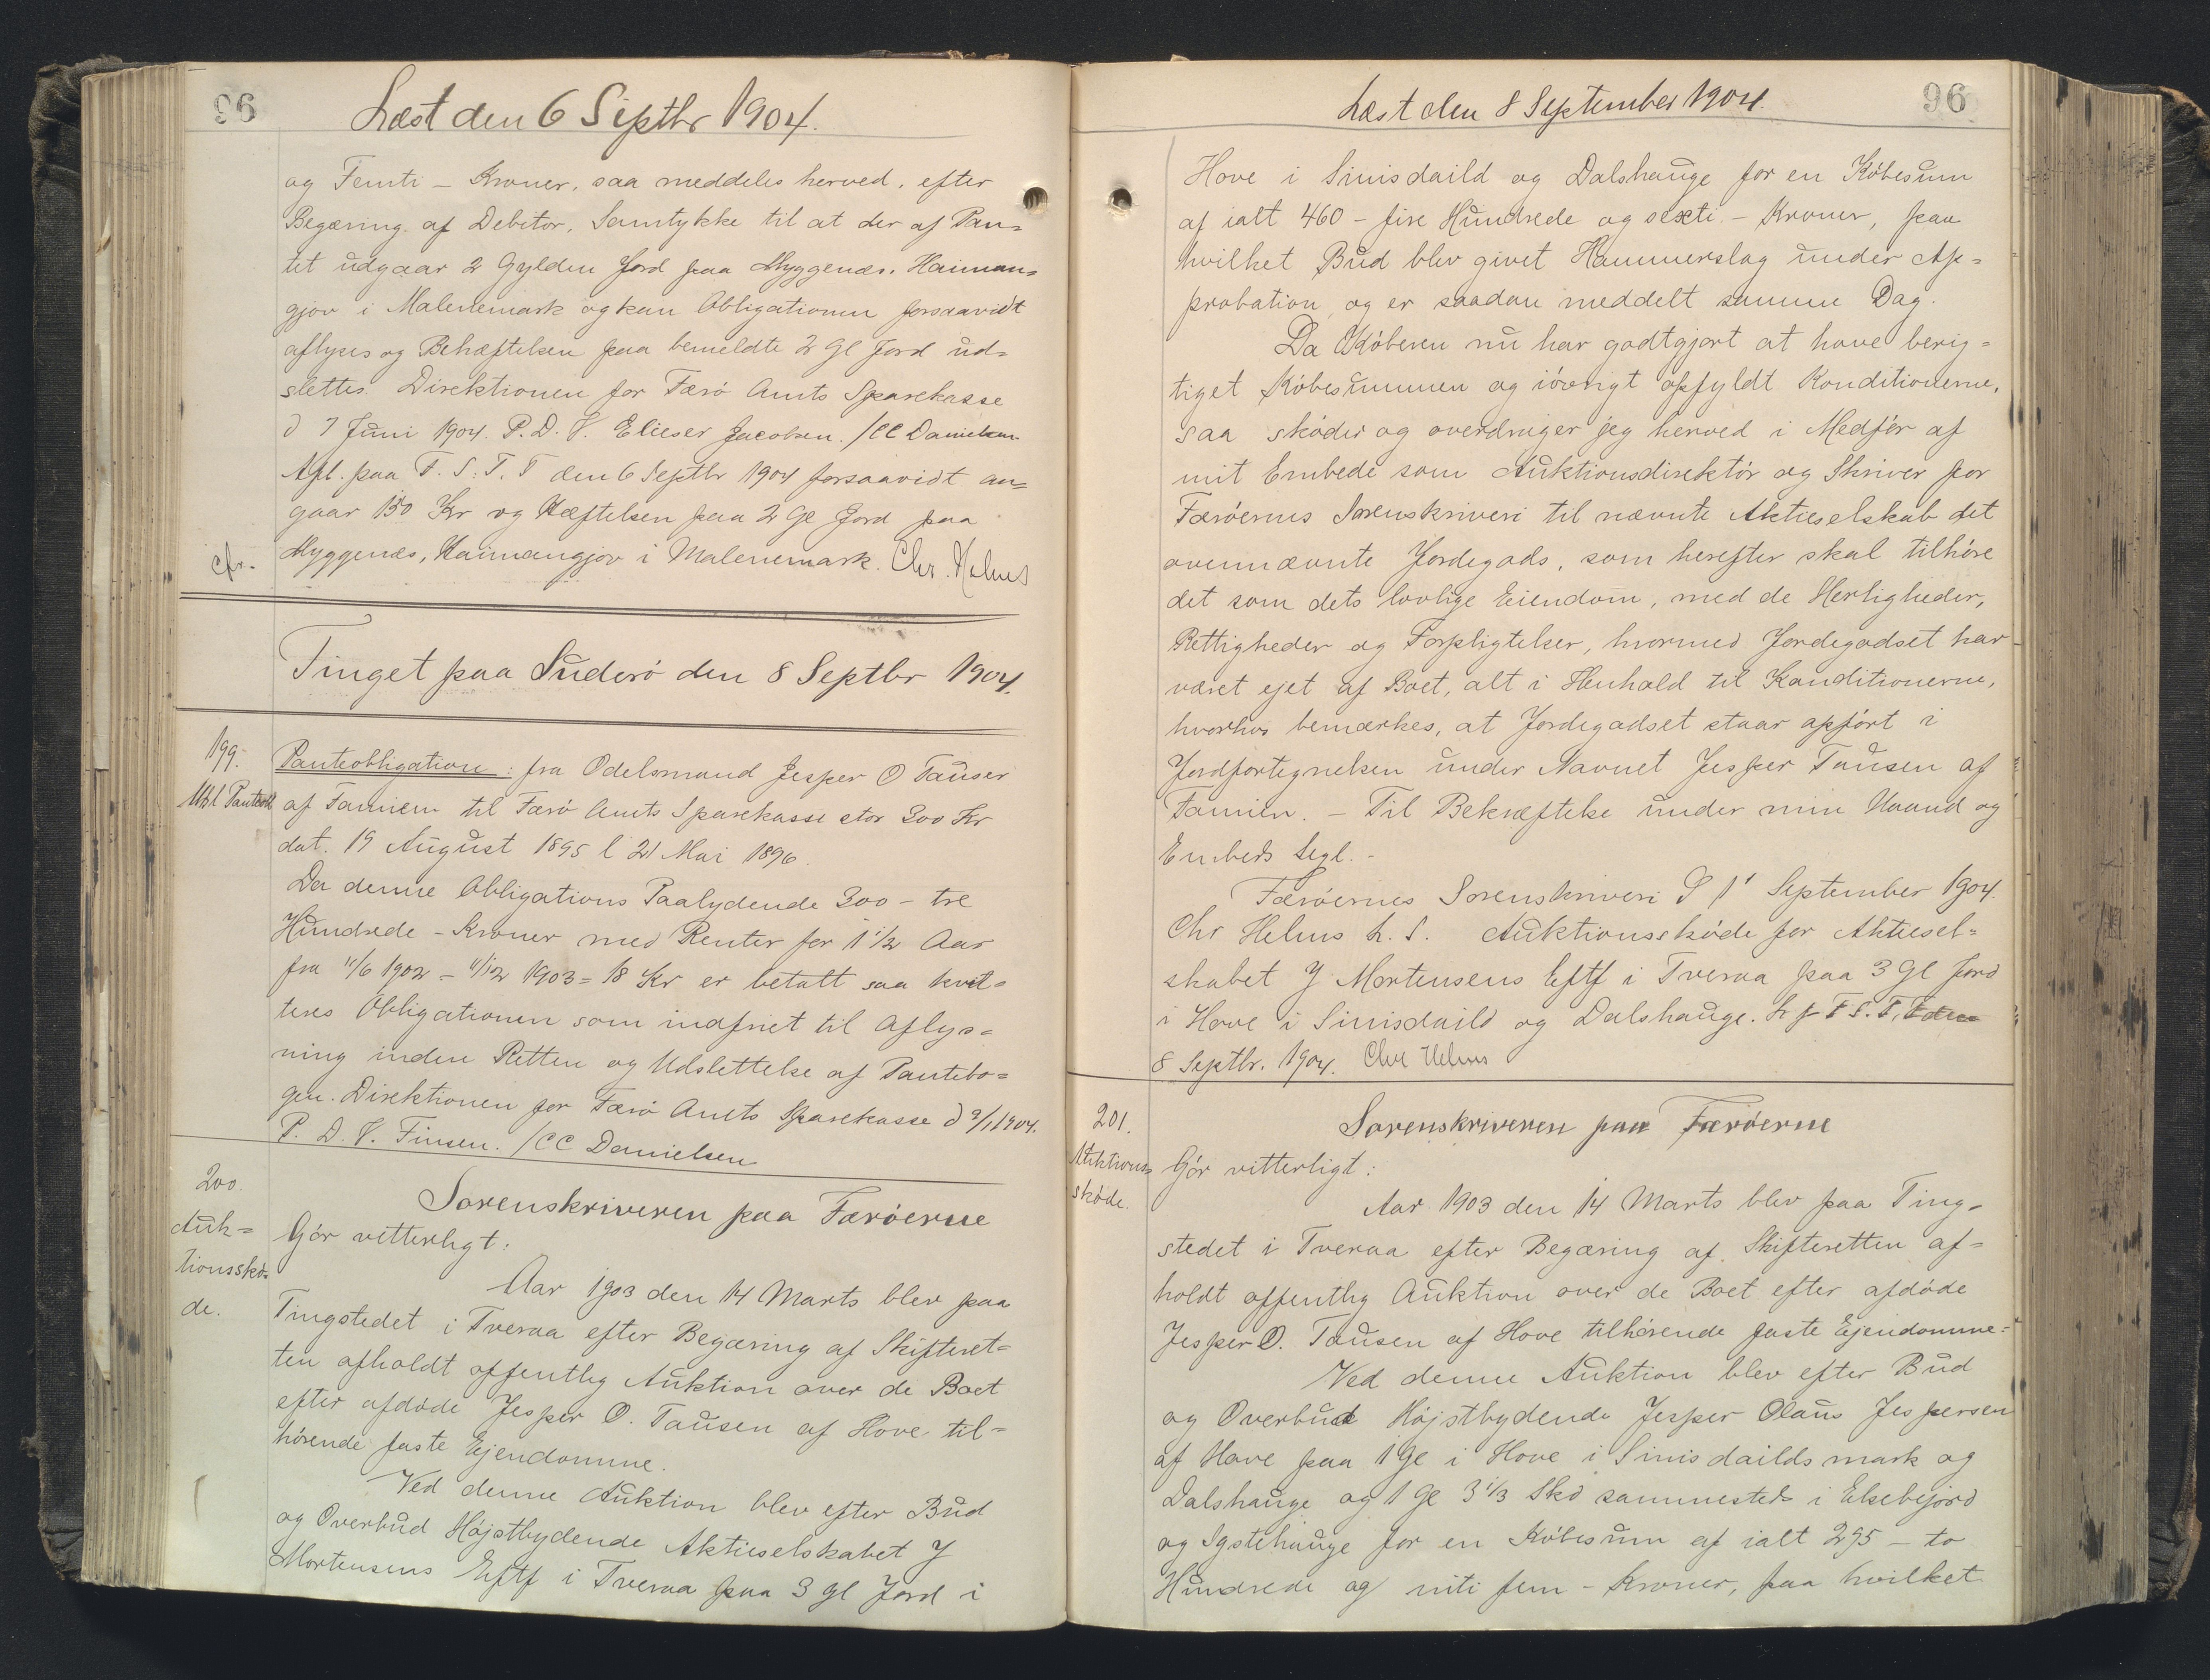 96
Læst den 6 Septbr 1904.
og Femti - Kroner, saa meddeles herved, efter
Begæring af Debitor, Samtykke til at der af Pan=
tet udgaar 2 Gylden Jord paa Myggenæs, Haiman=
gjov i Malenemark og kan Obligationen forsaavidt
aflyses og Behæftelsen paa bemeldte 2 Gl Jord ud=
slettes. Direktionen for Færö Amts Sparekasse
d 7 Juni 1904. P. D. V. Elieser Jacobsen. /CC Danielsen
Afl. paa F. S. T. T den 6 Septbr 1904 forsaavidt an=
gaar 150 Kr og Hæftelsen paa 2 Gl Jord paa
cfr. Myggenæs, Haimangjov i Malenemark. Chr. Helms
Tinget paa Suderö den 8 Septbr 1904.
199. Panteobligation: fra Odelsmand Jesper O Tausen
af Famien til Færö Amts Sparekasse stor 300 Kr
dat. 19 August 1895 l 21 Mai 1896.
Da denne Obligations Paalydende 300 - tre
Hundrede - Kroner med Renter for 1 1/2 Aar
fra 11/6 1902 - 11/12 1903 = 18 Kr er betalt saa kvit=
teres Obligationen som indfriet til Aflys=
ning inden Retten og Udslettelse af Pantebo=
gen. Direktionen for Færö Amts Sparekasse d 9/1 1904.
P. D. V. Finsen. /CC Danielsen
200.
Auk=
tionsskö=
de.
Sorenskriveren paa Færöerne
Gör vitterligt:
Aar 1903 den 14 Marts blev paa
Tingstedet i Tveraa efter Begæring af Skifteret=
ten afholdt offentlig Auktion over de Boet
efter afdöde Jesper O. Tausen af Hove til=
hörende faste Ejendomme.
Ved denne Auktion blev efter Bud
og Overbud Höjstbydende Aktieselskabet J
Mortensens Eftf i Tveraa paa 3 Gl Jord i
Læst den 8 September 1904.
96
Hove i Sinisdaild og Dalshauge for en Köbesum
af ialt 460 - fire Hundrede og sexti - Kroner, paa
hvilket Bud blev givet Hammerslag under Ap=
probation, og er saadan meddelt samme Dag.
Da Köberen nu har godtgjort at have berig=
tiget Köbesummen og iövrigt opfyldt Konditionerne,
saa sköder og overdrager jeg herved i Medför af
mit Embede som Auktionsdirektör og Skriver for
Færöernes Sorenskriveri til nævnte Aktieselskab det
ovennævnte Jordegods, som herefter skal tilhöre
det som dets lovlige Eiendom, med de Herligheder,
Rettigheder og Forpligtelser, hvormed Jordegodset har
været ejet af Boet, alt i Henhold til Konditionerne,
hvorhos bemærkes, at Jordegodset staar opfört i
Jordfortegnelsen under Navnet Jesper Tausen af
Famien. - Til Bekræftelse under min Haand og
Embeds Segl. -
Færöernes Sorenskriveri d 1' September 1904.
Chr Helms L. S. Auktionssköde for Aktiesel=
skabet J Mortensens Eftf i Tveraa paa 3 Gl Jord
i Hove i Sinisdaild og Dalshauge. L p F. S. T. T den
8 Septbr. 1904. Chr Helms
201.
Auktions
sköde.
Sorenskriveren paa Færöerne
Gör vitterligt:
Aar 1903 den 14 Marts blev paa Ting=
stedet i Tveraa efter Begæring af Skifteretten af=
holdt offentlig Auktion over de Boet efter afdöde
Jesper O. Tausen af Hove tilhörende faste Ejendomme.
Ved denne Auktion blev efter Bud
og Overbud Höjstbydende Jesper Olaus Jespersen
af Hove paa 1 Gl i Hove i Sinisdailds mark og
Dalshauge og 1 Gl 3 1/3 Skd sammesteds i Elsebejord
og Igstehauge for en Köbesum af ialt 295 - to
Hundrede og niti fem - Kroner, paa hvilket